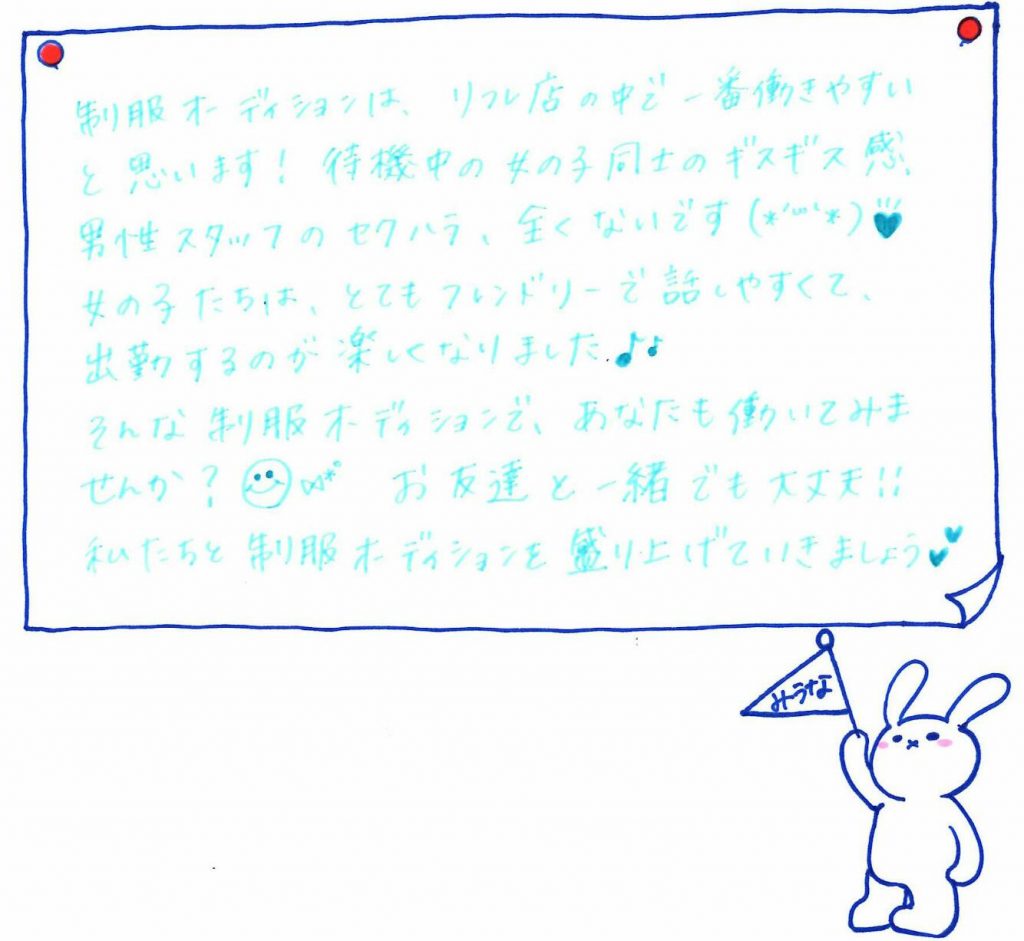 制服オーディションは、リフレ店の中で一番働きやすい
と思います！待機中の女の子同士のギスギス感、
男性スタッフのセクハラ、全くないです(*´꒳`*)♥
女の子たちは、とてもフレンドリーで話しやすくて、
出勤するのが楽しくなりました♪♪
そんな制服オーディションで、あなたも働いてみま
せんか？ お友達と一緒でも大丈夫!!
私たちと制服オーディションを盛り上げていきましょう♥♥
みうな